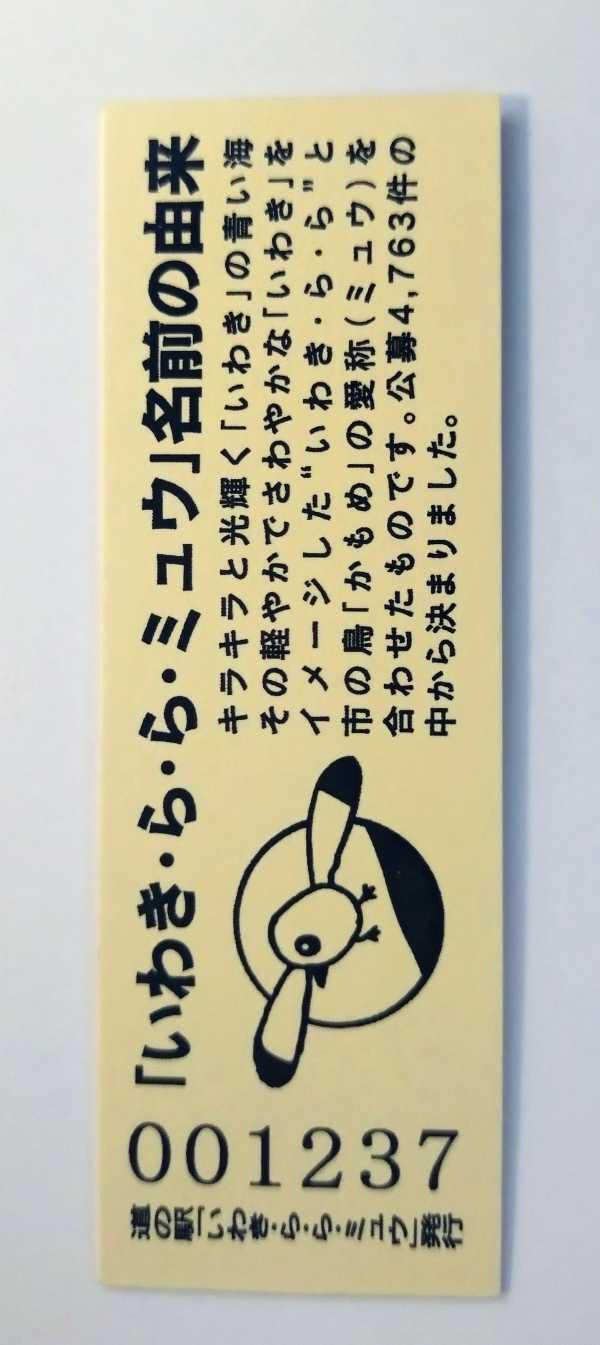 「いわき・ら・ら・ミュウ」名前の由来
キラキラと光輝く「いわき」の青い海
その軽やかでさわやかな「いわき」を
イメージした“いわき・ら・ら”と
市の鳥「かもめ」の愛称(ミュウ)を
合わせたものです。公募4,763件の
中から決まりました。
001237
道の駅「いわき・ら・ら・ミュウ」発行